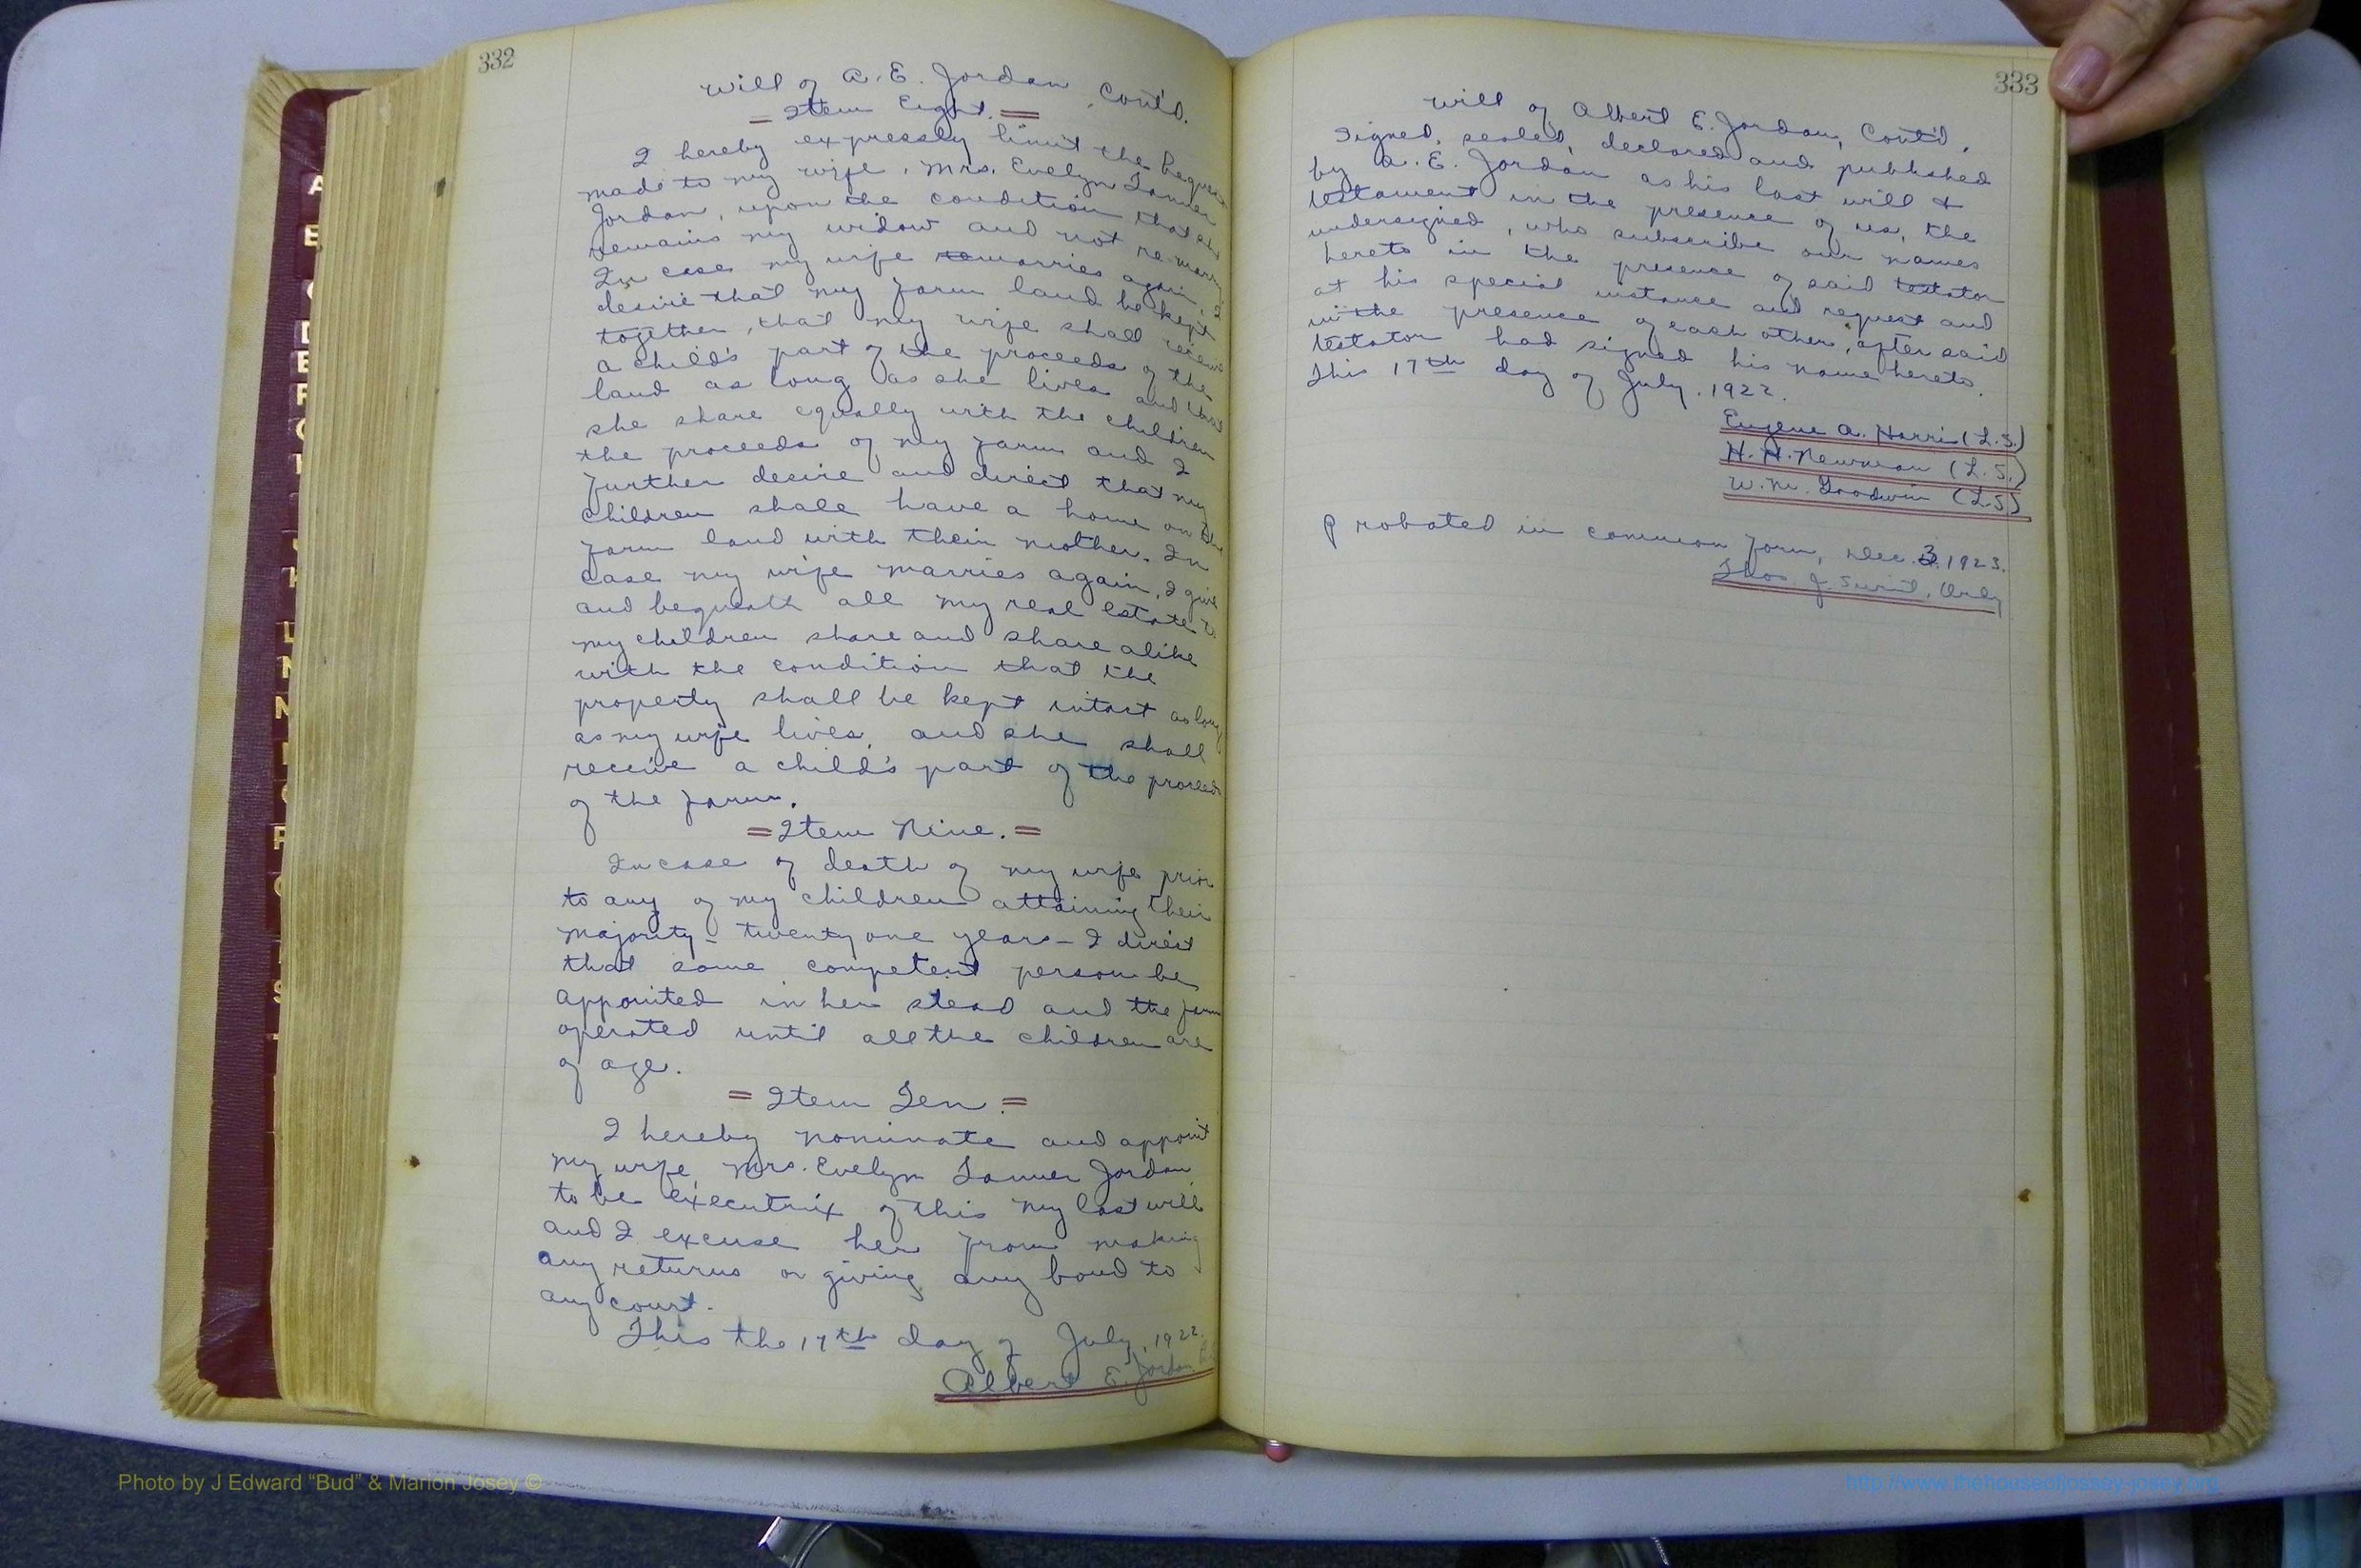 332
Will of A. E. Jordan, Cont'd.
= Item Eight. =
I hereby expressly limit the Bequest
made to my wife, Mrs. Evelyn Tanner
Jordan, upon the condition that she
remains my widow and not re-marry.
In case my wife remarries again, I
desire that my farm land be kept
together, that my wife shall receive
a child's part of the proceeds of the
land as long as she lives and that
she share equally with the children
the proceeds of my farm and I
further desire and direct that my
children shall have a home on the
farm land with their mother. In
case my wife marries again, I give
and bequeath all my real estate to
my children share and share alike
with the condition that the
property shall be kept intact as long
as my wife lives, and she shall
receive a child's part of the proceeds
of the farm.
= Item Nine. =
In case of death of my wife prior
to any of my children attaining their
majority - twenty one years - I direct
that some competent person be
appointed in her stead and the farm
operated until all the children are
of age.
= Item Ten. =
I hereby nominate and appoint
my wife, Mrs. Evelyn Tanner Jordan
to be executrix of this my last will
and I excuse her from making
any returns or giving any bond to
any court.
This the 17th day of July, 1922.
Albert E. Jordan
333
Will of Albert E. Jordan, Cont'd.
Signed, sealed, declared and published
by A. E. Jordan as his last will &
testament in the presence of us, the
undersigned, who subscribe our names
hereto in the presence of said testator
at his special instance and request and
in the presence of each other, after said
testator had signed his name hereto.
This 17th day of July, 1922.
Eugene A. Harris (L.S.)
H. H. Newman (L.S.)
W. M. Goodwin (L.S)
Probated in common form, Dec. 3, 1923.
Thos. J. Swint, Ordy
A
E
Photo by J Edward “Bud” & Marion Josey ©
http://www.thehouseofjossey-josey.org